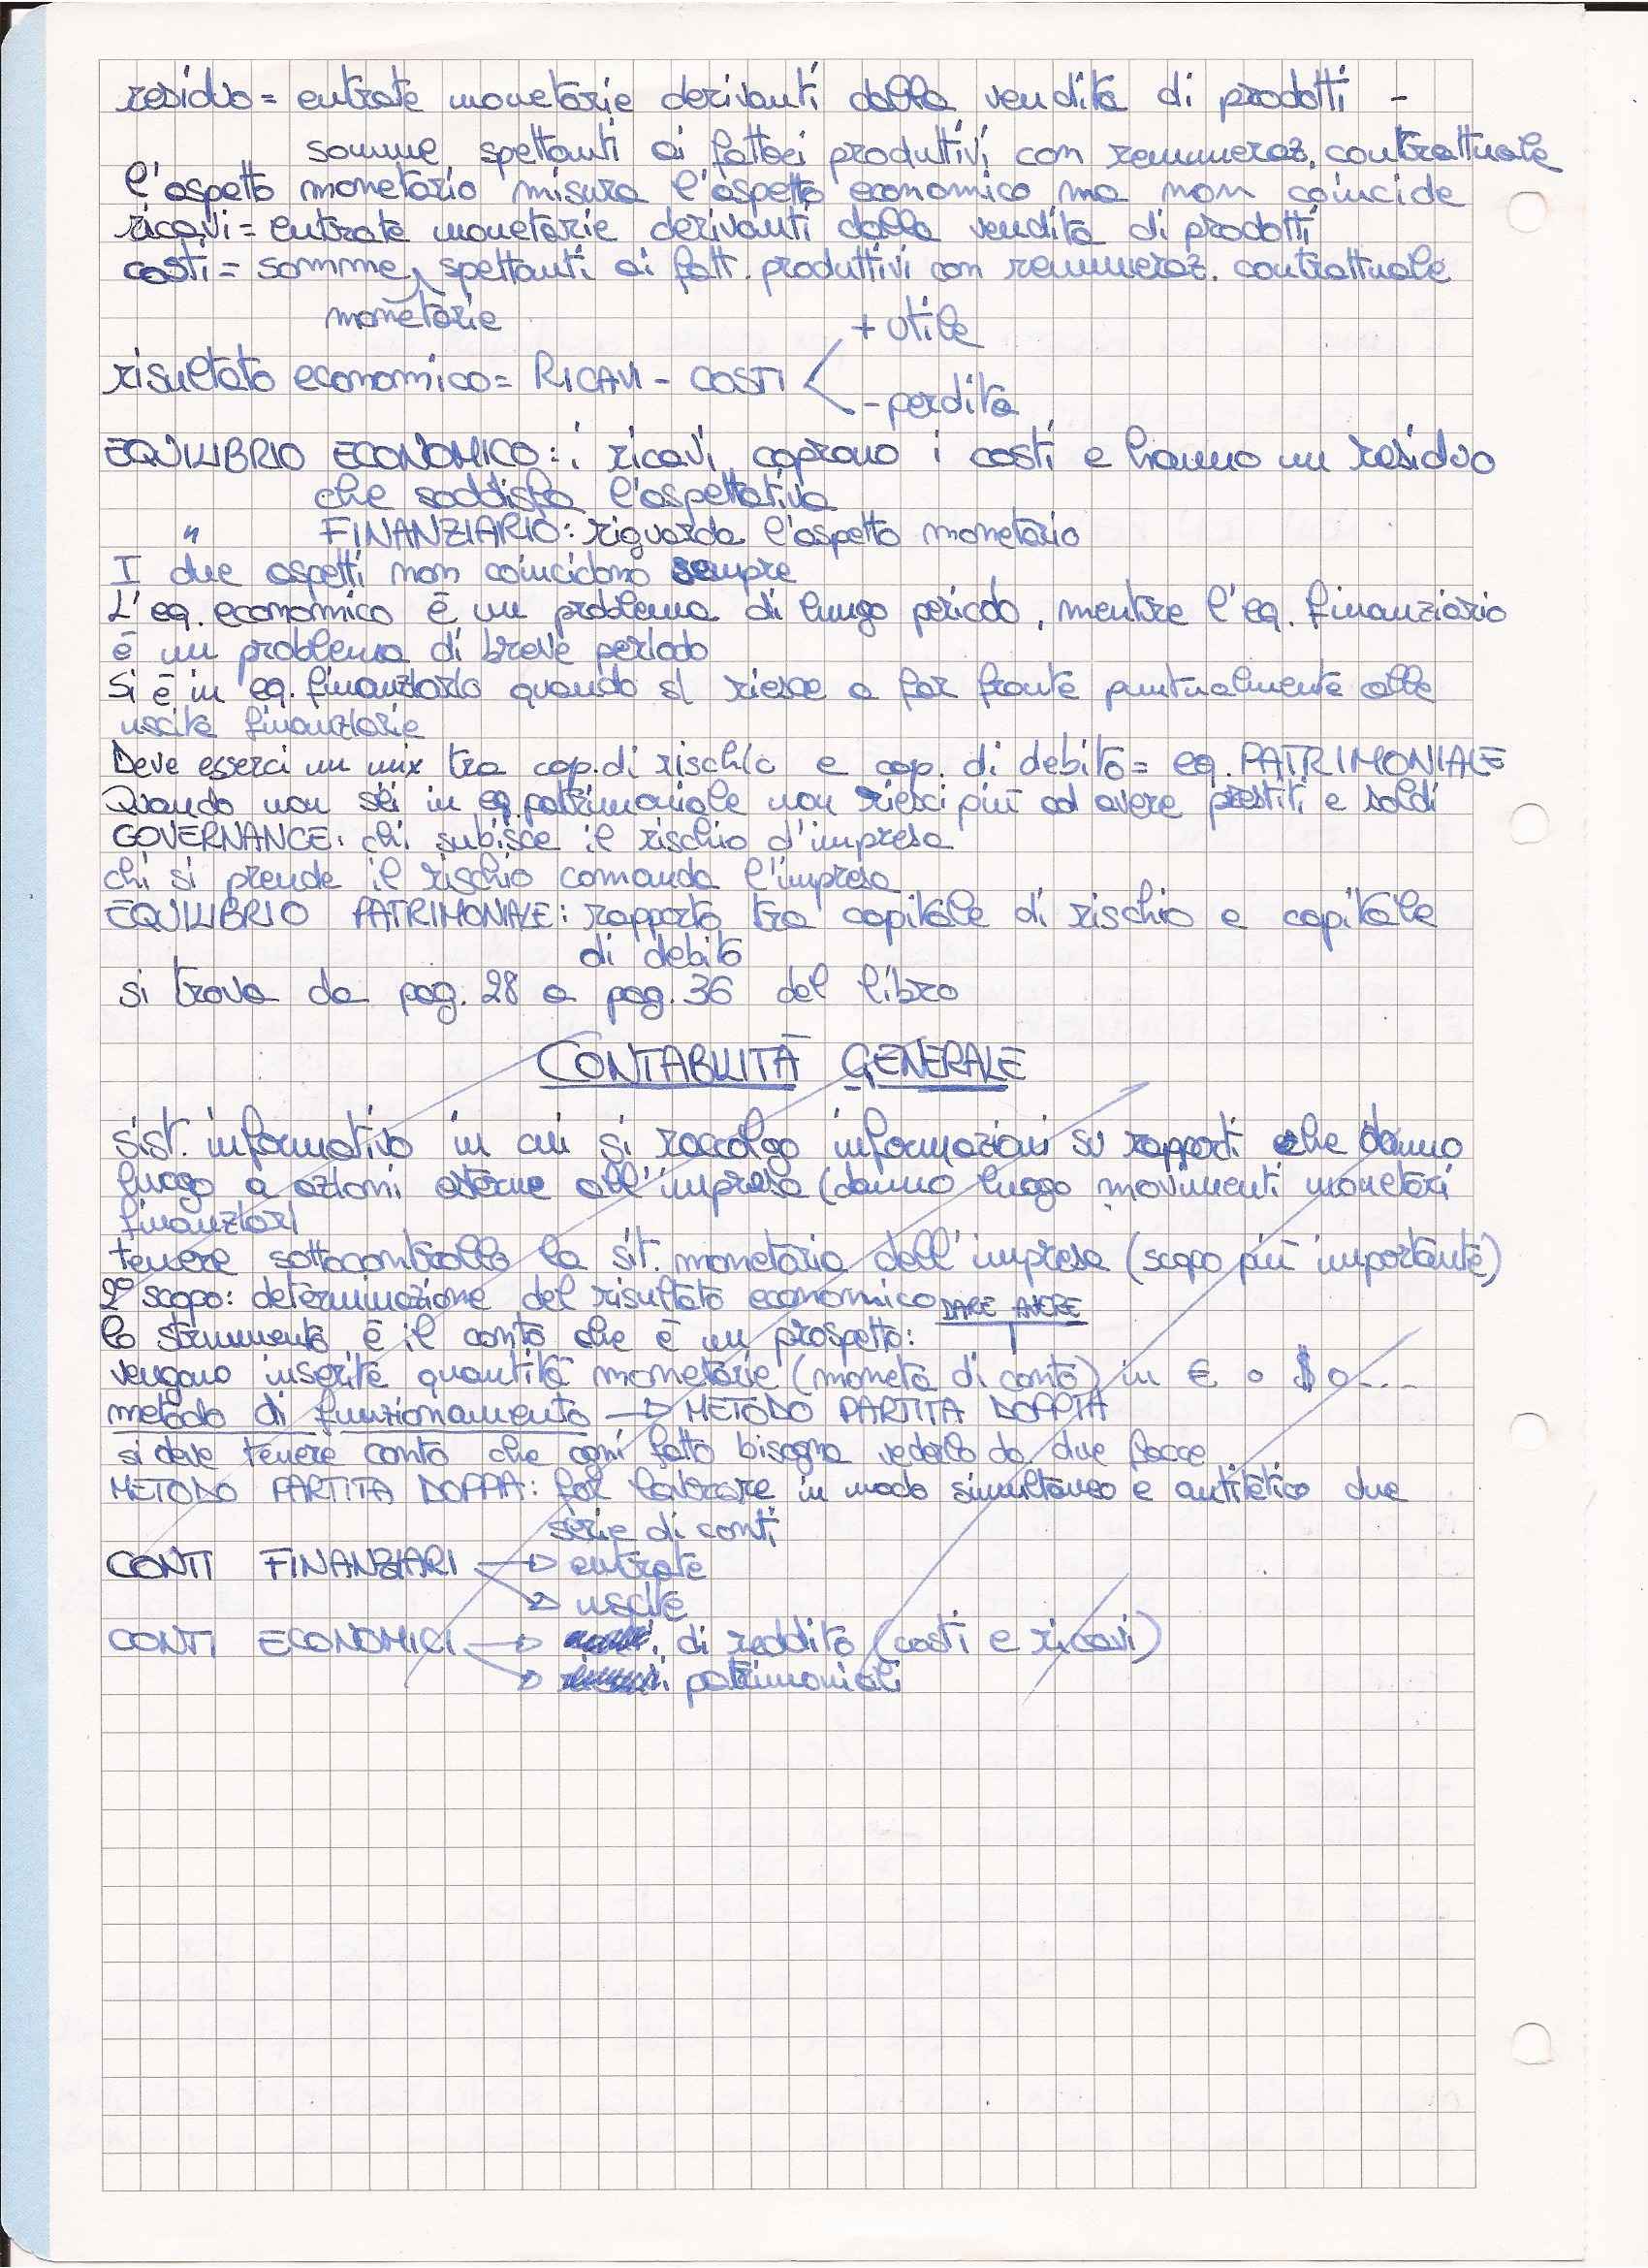 residuo = entrate monetarie derivanti dalla vendita di prodotti -
somme spettanti ai fattori produttivi con remuneraz. contrattuale
l'aspetto monetario misura l'aspetto economico ma non coincide
ricavi = entrate monetarie derivanti dalla vendita di prodotti
costi = sommme spettanti ai fatt. produttivi con remuneraz. contrattuale
monetarie
+ utile
risultato economico = RICAVI - COSTI
- perdita
EQUILIBRIO ECONOMICO: i ricavi coprono i costi e hanno un residuo
che soddisfa l'aspettativa
" FINANZIARIO: riguarda l'aspetto monetario
I due aspetti non coincidono sempre
L'eq. economico è un problema di lungo periodo, mentre l'eq. finanziario
è un problema di breve periodo
Si è in eq. finanziario quando si riesce a far fronte puntualmente alle
uscite finanziarie
Deve esserci un mix tra cap. di rischio e cap. di debito = eq. PATRIMONIALE
Quando non sei in eq. patrimoniale non riesci più ad avere prestiti e soldi
GOVERNANCE: chi subisce il rischio d'impresa
chi si prende il rischio comanda l'impresa
EQUILIBRIO PATRIMONIALE: rapporto tra capitale di rischio e capitale
di debito
si trova da pag. 28 a pag. 36 del libro
CONTABILITÀ GENERALE
sist. informativo in cui si raccolgo informazioni su rapporti che danno
luogo a azioni esterne all'impresa (danno luogo movimenti monetari
finanziari
tenere sottocontrollo la sit. monetaria dell'impresa (scopo più importante)
2° scopo: determinazione del risultato economico DARE AVERE
lo strumento è il conto che è un prospetto:
vengono inserite quantità monetarie (moneta di conto) in € o $ o ...
metodo di funzionamento → METODO PARTITA DOPPIA
si deve tenere conto che ogni fatto bisogna vederlo da due facce
METODO PARTITA DOPPIA: far lavorare in modo simultaneo e antitetico due
serie di conti
CONTI FINANZIARI → entrate
→ uscite
CONTI ECONOMICI → di reddito (costi e ricavi)
→ patrimoniali